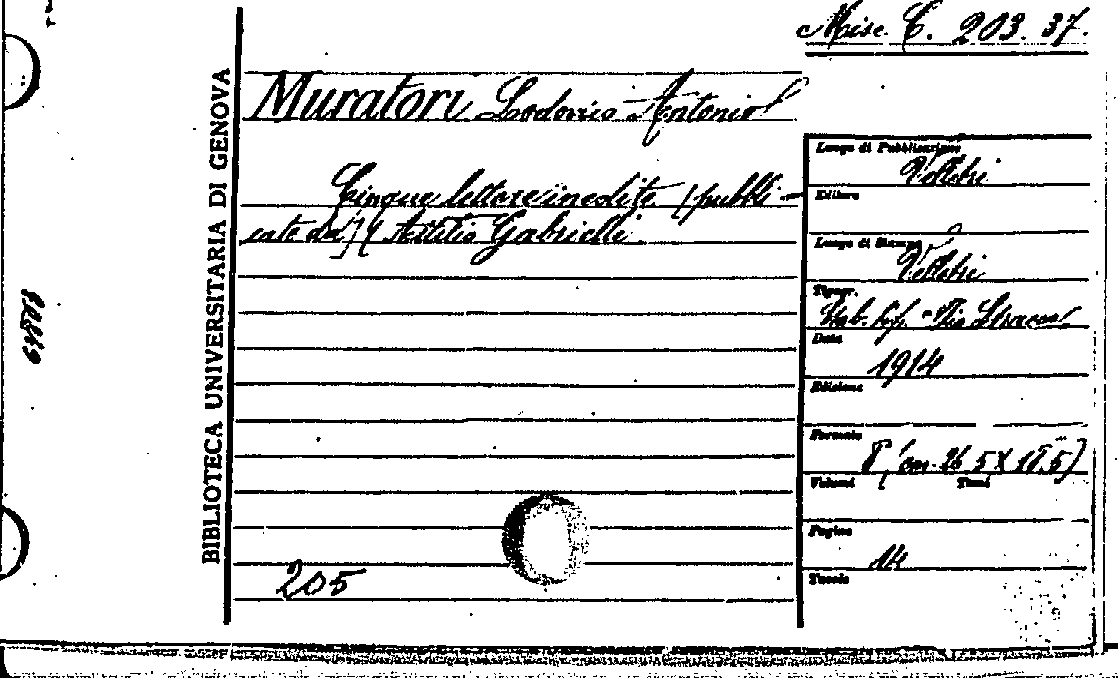 Misc. C. 203. 37.
BIBLIOTECA UNIVERSITARIA DI GENOVA
Muratori Lodovico Antonio
Cinque lettere inedite [pubbli-
cate da] Attilio Gabrielli
205
Luogo di Pubblicazione
Velletri
Editore
Luogo di Stampa
Velletri
Tipogr.
Stab. tip. "Pio Stracca"
Data
1914
Edizione
Formato
8° (cm. 26,5 X 18,5)
Volumi Tomi
Pagine
14
Tavole